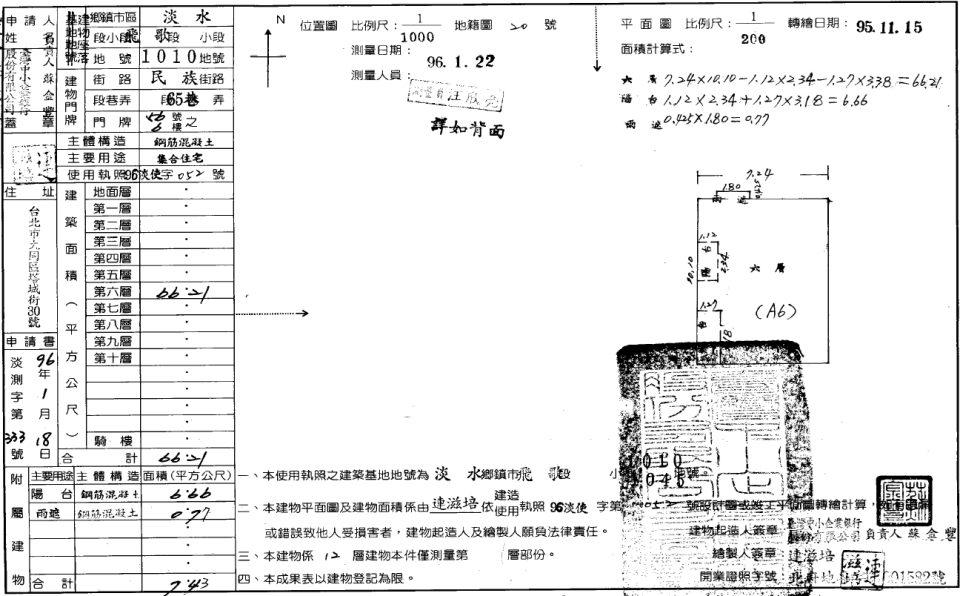 申請人姓名
負責人 蘇金豐
蓋章
住址
台北市大同區塔城街30號
申請書
淡測字第333號
96年1月18日
建物基地坐落
鄉鎮市區 淡水
段小段 飛歌段 小段
地號 1010地號
建物門牌
街路 民族街路
段巷弄 段65巷 弄
門牌 56號6樓之
主體構造 鋼筋混凝土
主要用途 集合住宅
使用執照 96淡使字052號
建築面積（平方公尺）
地面層
第一層
第二層
第三層
第四層
第五層
第六層 66.21
第七層
第八層
第九層
第十層
騎樓
合計 66.21
附屬建物
主要用途 主體構造 面積(平方公尺)
陽台 鋼筋混凝土 6.66
雨遮 鋼筋混凝土 0.77
合計 7.43
N
位置圖 比例尺：1/1000 地籍圖 20 號
測量日期：96.1.22
測量人員：
詳如背面
平面圖 比例尺：1/200 轉繪日期：95.11.15
面積計算式：
六層 7.24×10.10-1.12×2.34-1.27×3.18=66.21
陽台 1.12×2.34+1.27×3.18=6.66
雨遮 0.425×1.80=0.77
7.24
1.80
雨遮
1.12
陽台
2.34
10.10
六層
1.27
(A6)
一、本使用執照之建築基地地號為 淡水鄉鎮市 飛歌段 小段 1010
二、本建物平面圖及建物面積係由 連滋培 依 建造使用 執照 96淡使 字第 052 號設計圖或竣工平面圖轉繪計算，
或錯誤致他人受損害者，建物起造人及繪製人願負法律責任。
三、本建物係 12 層建物本件僅測量第 層部份。
四、本成果表以建物登記為限。
建物起造人簽章：臺灣中小企業銀行股份有限公司 負責人 蘇金豐
繪製人簽章：連滋培
開業證照字號：